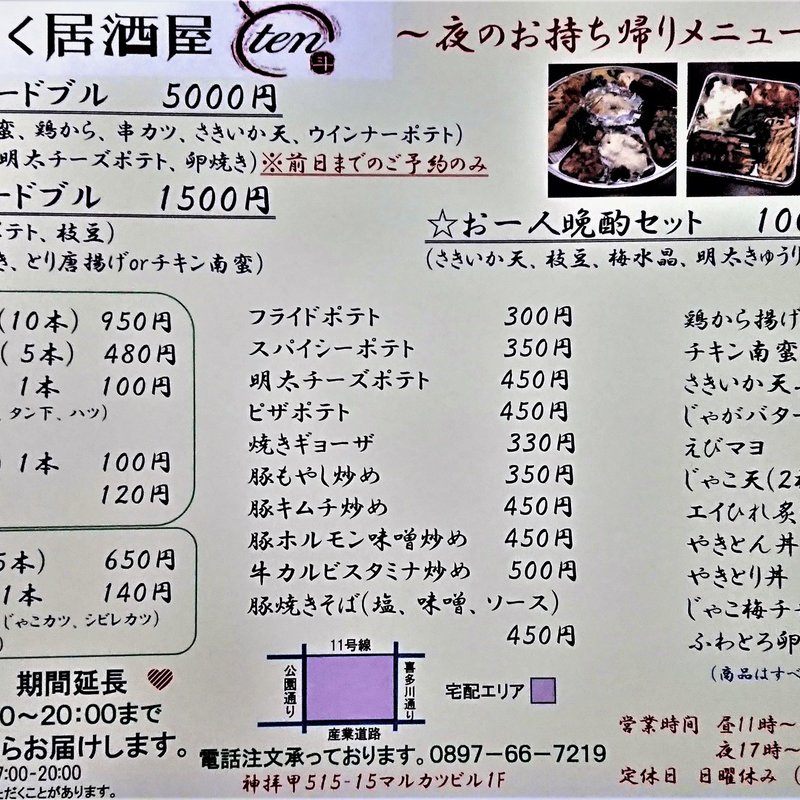 く居酒屋 ten 斗
～夜のお持ち帰りメニュー
ードブル 5000円
蛮、鶏から、串カツ、さきいか天、ウインナーポテト)
明太チーズポテト、卵焼き)※前日までのご予約のみ
ードブル 1500円
ポテト、枝豆)
き、とり唐揚げorチキン南蛮)
☆お一人晩酌セット 100
(さきいか天、枝豆、梅水晶、明太きゅうり
(10本) 950円
(5本) 480円
1本 100円
、タン下、ハツ)
) 1本 100円
120円
5本) 650円
1本 140円
、じゃこカツ、シビレカツ)
フライドポテト 300円
スパイシーポテト 350円
明太チーズポテト 450円
ピザポテト 450円
焼きギョーザ 330円
豚もやし炒め 350円
豚キムチ炒め 450円
豚ホルモン味噌炒め 450円
牛カルビスタミナ炒め 500円
豚焼きそば(塩、味噌、ソース)
450円
鶏から揚げ
チキン南蛮
さきいか天
じゃがバター
えびマヨ
じゃこ天(2本
エイひれ炙
やきとん丼
やきとり丼
じゃこ梅チー
ふわとろ卵
(商品はすべ
期間延長
0～20:00まで
らお届けします。
7:00-20:00
ただくことがあります。
11号線
公園通り
喜多川通り
産業道路
宅配エリア
電話注文承っております。0897-66-7219
神拝甲515-15マルカツビル1F
営業時間 昼11時～
夜17時～
定休日 日曜休み (